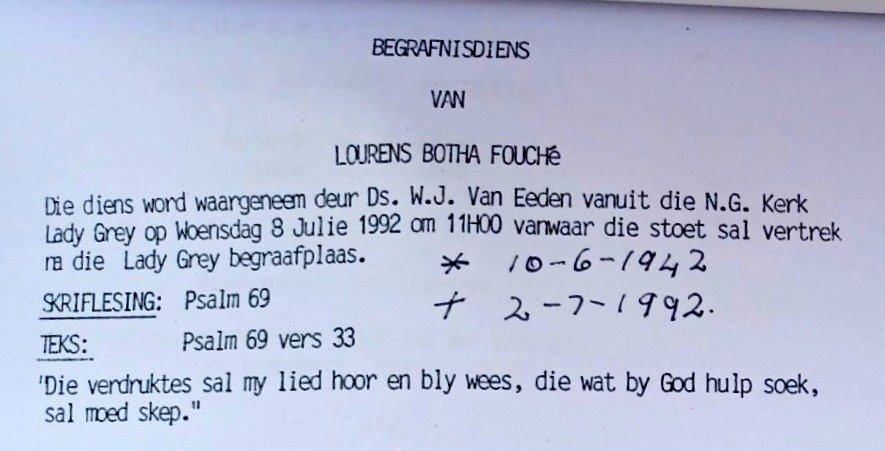 BEGRAFNISDIENS
VAN
LOURENS BOTHA FOUCHé
Die diens word waargeneem deur Ds. W.J. Van Eeden vanuit die N.G. Kerk
Lady Grey op Woensdag 8 Julie 1992 om 11H00 vanwaar die stoet sal vertrek
na die Lady Grey begraafplaas. * 10-6-1942
SKRIFLESING: Psalm 69 + 2-7-1992.
TEKS: Psalm 69 vers 33
'Die verdruktes sal my lied hoor en bly wees, die wat by God hulp soek,
sal moed skep."